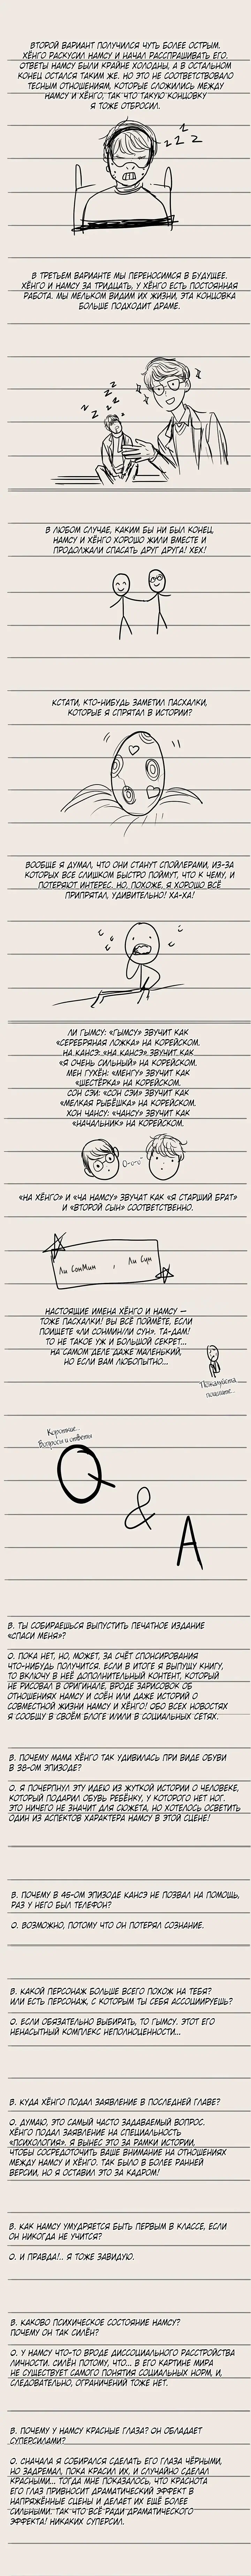 ВТОРОЙ ВАРИАНТ ПОЛУЧИЛСЯ ЧУТЬ БОЛЕЕ ОСТРЫМ.
ХЁНГО РАСКУСИЛ НАМСУ И НАЧАЛ РАССПРАШИВАТЬ ЕГО.
ОТВЕТЫ НАМСУ БЫЛИ КРАЙНЕ ХОЛОДНЫ, А В ОСТАЛЬНОМ
КОНЕЦ ОСТАЛСЯ ТАКИМ ЖЕ. НО ЭТО НЕ СООТВЕТСТВОВАЛО
ТЕСНЫМ ОТНОШЕНИЯМ, КОТОРЫЕ СЛОЖИЛИСЬ МЕЖДУ
НАМСУ И ХЁНГО, ТАК ЧТО ТАКУЮ КОНЦОВКУ
Я ТОЖЕ ОТБРОСИЛ.
Z Z Z
В ТРЕТЬЕМ ВАРИАНТЕ МЫ ПЕРЕНОСИМСЯ В БУДУЩЕЕ.
ХЁНГО И НАМСУ ЗА ТРИДЦАТЬ, У ХЁНГО ЕСТЬ ПОСТОЯННАЯ
РАБОТА. МЫ МЕЛЬКОМ ВИДИМ ИХ ЖИЗНИ, ЭТА КОНЦОВКА
БОЛЬШЕ ПОДХОДИТ ДРАМЕ.
В ЛЮБОМ СЛУЧАЕ, КАКИМ БЫ НИ БЫЛ КОНЕЦ,
НАМСУ И ХЁНГО ХОРОШО ЖИЛИ ВМЕСТЕ И
ПРОДОЛЖАЛИ СПАСАТЬ ДРУГ ДРУГА! ХЕХ!
КСТАТИ, КТО-НИБУДЬ ЗАМЕТИЛ ПАСХАЛКИ,
КОТОРЫЕ Я СПРЯТАЛ В ИСТОРИИ?
ВООБЩЕ Я ДУМАЛ, ЧТО ОНИ СТАНУТ СПОЙЛЕРАМИ, ИЗ-ЗА
КОТОРЫХ ВСЕ СЛИШКОМ БЫСТРО ПОЙМУТ, ЧТО К ЧЕМУ, И
ПОТЕРЯЮТ ИНТЕРЕС. НО, ПОХОЖЕ, Я ХОРОШО ВСЁ
ПРИПРЯТАЛ, УДИВИТЕЛЬНО! ХА-ХА!
ЛИ ГЫМСУ: «ГЫМСУ» ЗВУЧИТ КАК
«СЕРЕБРЯНАЯ ЛОЖКА» НА КОРЕЙСКОМ.
НА КАНСЭ: «НА КАНСЭ» ЗВУЧИТ КАК
«Я ОЧЕНЬ СИЛЬНЫЙ» НА КОРЕЙСКОМ.
МЕН ГУХЁН: «МЕНГУ» ЗВУЧИТ КАК
«ШЕСТЁРКА» НА КОРЕЙСКОМ.
СОН СЭИ: «СОН СЭИ» ЗВУЧИТ КАК
«МЕЛКАЯ РЫБЁШКА» НА КОРЕЙСКОМ.
ХОН ЧАНСУ: «ЧАНСУ» ЗВУЧИТ КАК
«НАЧАЛЬНИК» НА КОРЕЙСКОМ.
«НА ХЁНГО» И «ЧА НАМСУ» ЗВУЧАТ КАК «Я СТАРШИЙ БРАТ»
И «ВТОРОЙ СЫН» СООТВЕТСТВЕННО.
Ли СонМин , Ли Сун
НАСТОЯЩИЕ ИМЕНА ХЁНГО И НАМСУ —
ТОЖЕ ПАСХАЛКИ! ВЫ ВСЁ ПОЙМЁТЕ, ЕСЛИ
ПОИЩЕТЕ «ЛИ СОНМИНЛИ СУН». ТА-ДАМ!
ТО НЕ ТАКОЕ УЖ И БОЛЬШОЙ СЕКРЕТ...
НА САМОМ ДЕЛЕ ДАЖЕ МАЛЕНЬКИЙ,
НО ЕСЛИ ВАМ ЛЮБОПЫТНО...
Пожалуйста
поищите..
Короткие..
Вопросы и ответы
Q & A
В. ТЫ СОБИРАЕШЬСЯ ВЫПУСТИТЬ ПЕЧАТНОЕ ИЗДАНИЕ
«СПАСИ МЕНЯ»?
О. ПОКА НЕТ, НО, МОЖЕТ, ЗА СЧЁТ СПОНСИРОВАНИЯ
ЧТО-НИБУДЬ ПОЛУЧИТСЯ. ЕСЛИ В ИТОГЕ Я ВЫПУЩУ КНИГУ,
ТО ВКЛЮЧУ В НЕЁ ДОПОЛНИТЕЛЬНЫЙ КОНТЕНТ, КОТОРЫЙ
НЕ РИСОВАЛ В ОРИГИНАЛЕ, ВРОДЕ ЗАРИСОВОК ОБ
ОТНОШЕНИЯХ НАМСУ И СОЁН ИЛИ ДАЖЕ ИСТОРИЙ О
СОВМЕСТНОЙ ЖИЗНИ НАМСУ И ХЁНГО! ОБО ВСЕХ НОВОСТЯХ
Я СООБЩУ В СВОЁМ БЛОГЕ И/ИЛИ В СОЦИАЛЬНЫХ СЕТЯХ.
В. ПОЧЕМУ МАМА ХЁНГО ТАК УДИВИЛАСЬ ПРИ ВИДЕ ОБУВИ
В 38-ОМ ЭПИЗОДЕ?
О. Я ПОЧЕРПНУЛ ЭТУ ИДЕЮ ИЗ ЖУТКОЙ ИСТОРИИ О ЧЕЛОВЕКЕ,
КОТОРЫЙ ПОДАРИЛ ОБУВЬ РЕБЁНКУ, У КОТОРОГО НЕТ НОГ.
ЭТО НИЧЕГО НЕ ЗНАЧИТ ДЛЯ СЮЖЕТА, НО ХОТЕЛОСЬ ОСВЕТИТЬ
ОДИН ИЗ АСПЕКТОВ ХАРАКТЕРА НАМСУ В ЭТОЙ СЦЕНЕ!
В. ПОЧЕМУ В 46-ОМ ЭПИЗОДЕ КАНСЭ НЕ ПОЗВАЛ НА ПОМОЩЬ,
РАЗ У НЕГО БЫЛ ТЕЛЕФОН?
О. ВОЗМОЖНО, ПОТОМУ ЧТО ОН ПОТЕРЯЛ СОЗНАНИЕ.
В. КАКОЙ ПЕРСОНАЖ БОЛЬШЕ ВСЕГО ПОХОЖ НА ТЕБЯ?
ИЛИ ЕСТЬ ПЕРСОНАЖ, С КОТОРЫМ ТЫ СЕБЯ АССОЦИИРУЕШЬ?
О. ЕСЛИ ОБЯЗАТЕЛЬНО ВЫБИРАТЬ, ТО ГЫМСУ. ЭТОТ ЕГО
НЕНАСЫТНЫЙ КОМПЛЕКС НЕПОЛНОЦЕННОСТИ...
В. КУДА ХЁНГО ПОДАЛ ЗАЯВЛЕНИЕ В ПОСЛЕДНЕЙ ГЛАВЕ?
О. ДУМАЮ, ЭТО САМЫЙ ЧАСТО ЗАДАВАЕМЫЙ ВОПРОС.
ХЁНГО ПОДАЛ ЗАЯВЛЕНИЕ НА СПЕЦИАЛЬНОСТЬ
«ПСИХОЛОГИЯ». Я ВЫНЕС ЭТО ЗА РАМКИ ИСТОРИИ,
ЧТОБЫ СОСРЕДОТОЧИТЬ ВАШЕ ВНИМАНИЕ НА ОТНОШЕНИЯХ
МЕЖДУ НАМСУ И ХЁНГО. ТАК БЫЛО В БОЛЕЕ РАННЕЙ
ВЕРСИИ, НО Я ОСТАВИЛ ЭТО ЗА КАДРОМ!
В. КАК НАМСУ УМУДРЯЕТСЯ БЫТЬ ПЕРВЫМ В КЛАССЕ, ЕСЛИ
ОН НИКОГДА НЕ УЧИТСЯ?
О. И ПРАВДА!.. Я ТОЖЕ ЗАВИДУЮ.
В. КАКОВО ПСИХИЧЕСКОЕ СОСТОЯНИЕ НАМСУ?
ПОЧЕМУ ОН ТАК СИЛЁН?
О. У НАМСУ ЧТО-ТО ВРОДЕ ДИССОЦИАЛЬНОГО РАССТРОЙСТВА
ЛИЧНОСТИ. СИЛЁН ПОТОМУ, ЧТО... В ЕГО КАРТИНЕ МИРА
НЕ СУЩЕСТВУЕТ САМОГО ПОНЯТИЯ СОЦИАЛЬНЫХ НОРМ, И,
СЛЕДОВАТЕЛЬНО, ОГРАНИЧЕНИЙ ТОЖЕ НЕТ.
В. ПОЧЕМУ У НАМСУ КРАСНЫЕ ГЛАЗА? ОН ОБЛАДАЕТ
СУПЕРСИЛАМИ?
О. СНАЧАЛА Я СОБИРАЛСЯ СДЕЛАТЬ ЕГО ГЛАЗА ЧЁРНЫМИ,
НО ЗАДРЕМАЛ, ПОКА КРАСИЛ ИХ, И СЛУЧАЙНО СДЕЛАЛ
КРАСНЫМИ... ТОГДА МНЕ ПОКАЗАЛОСЬ, ЧТО КРАСНОТА
ЕГО ГЛАЗ ПРИВНОСИТ ДРАМАТИЧЕСКИЙ ЭФФЕКТ В
НАПРЯЖЁННЫЕ СЦЕНЫ И ДЕЛАЕТ ИХ ЕЩЁ БОЛЕЕ
СИЛЬНЫМИ. ТАК ЧТО ВСЁ РАДИ ДРАМАТИЧЕСКОГО
ЭФФЕКТА! НИКАКИХ СУПЕРСИЛ.